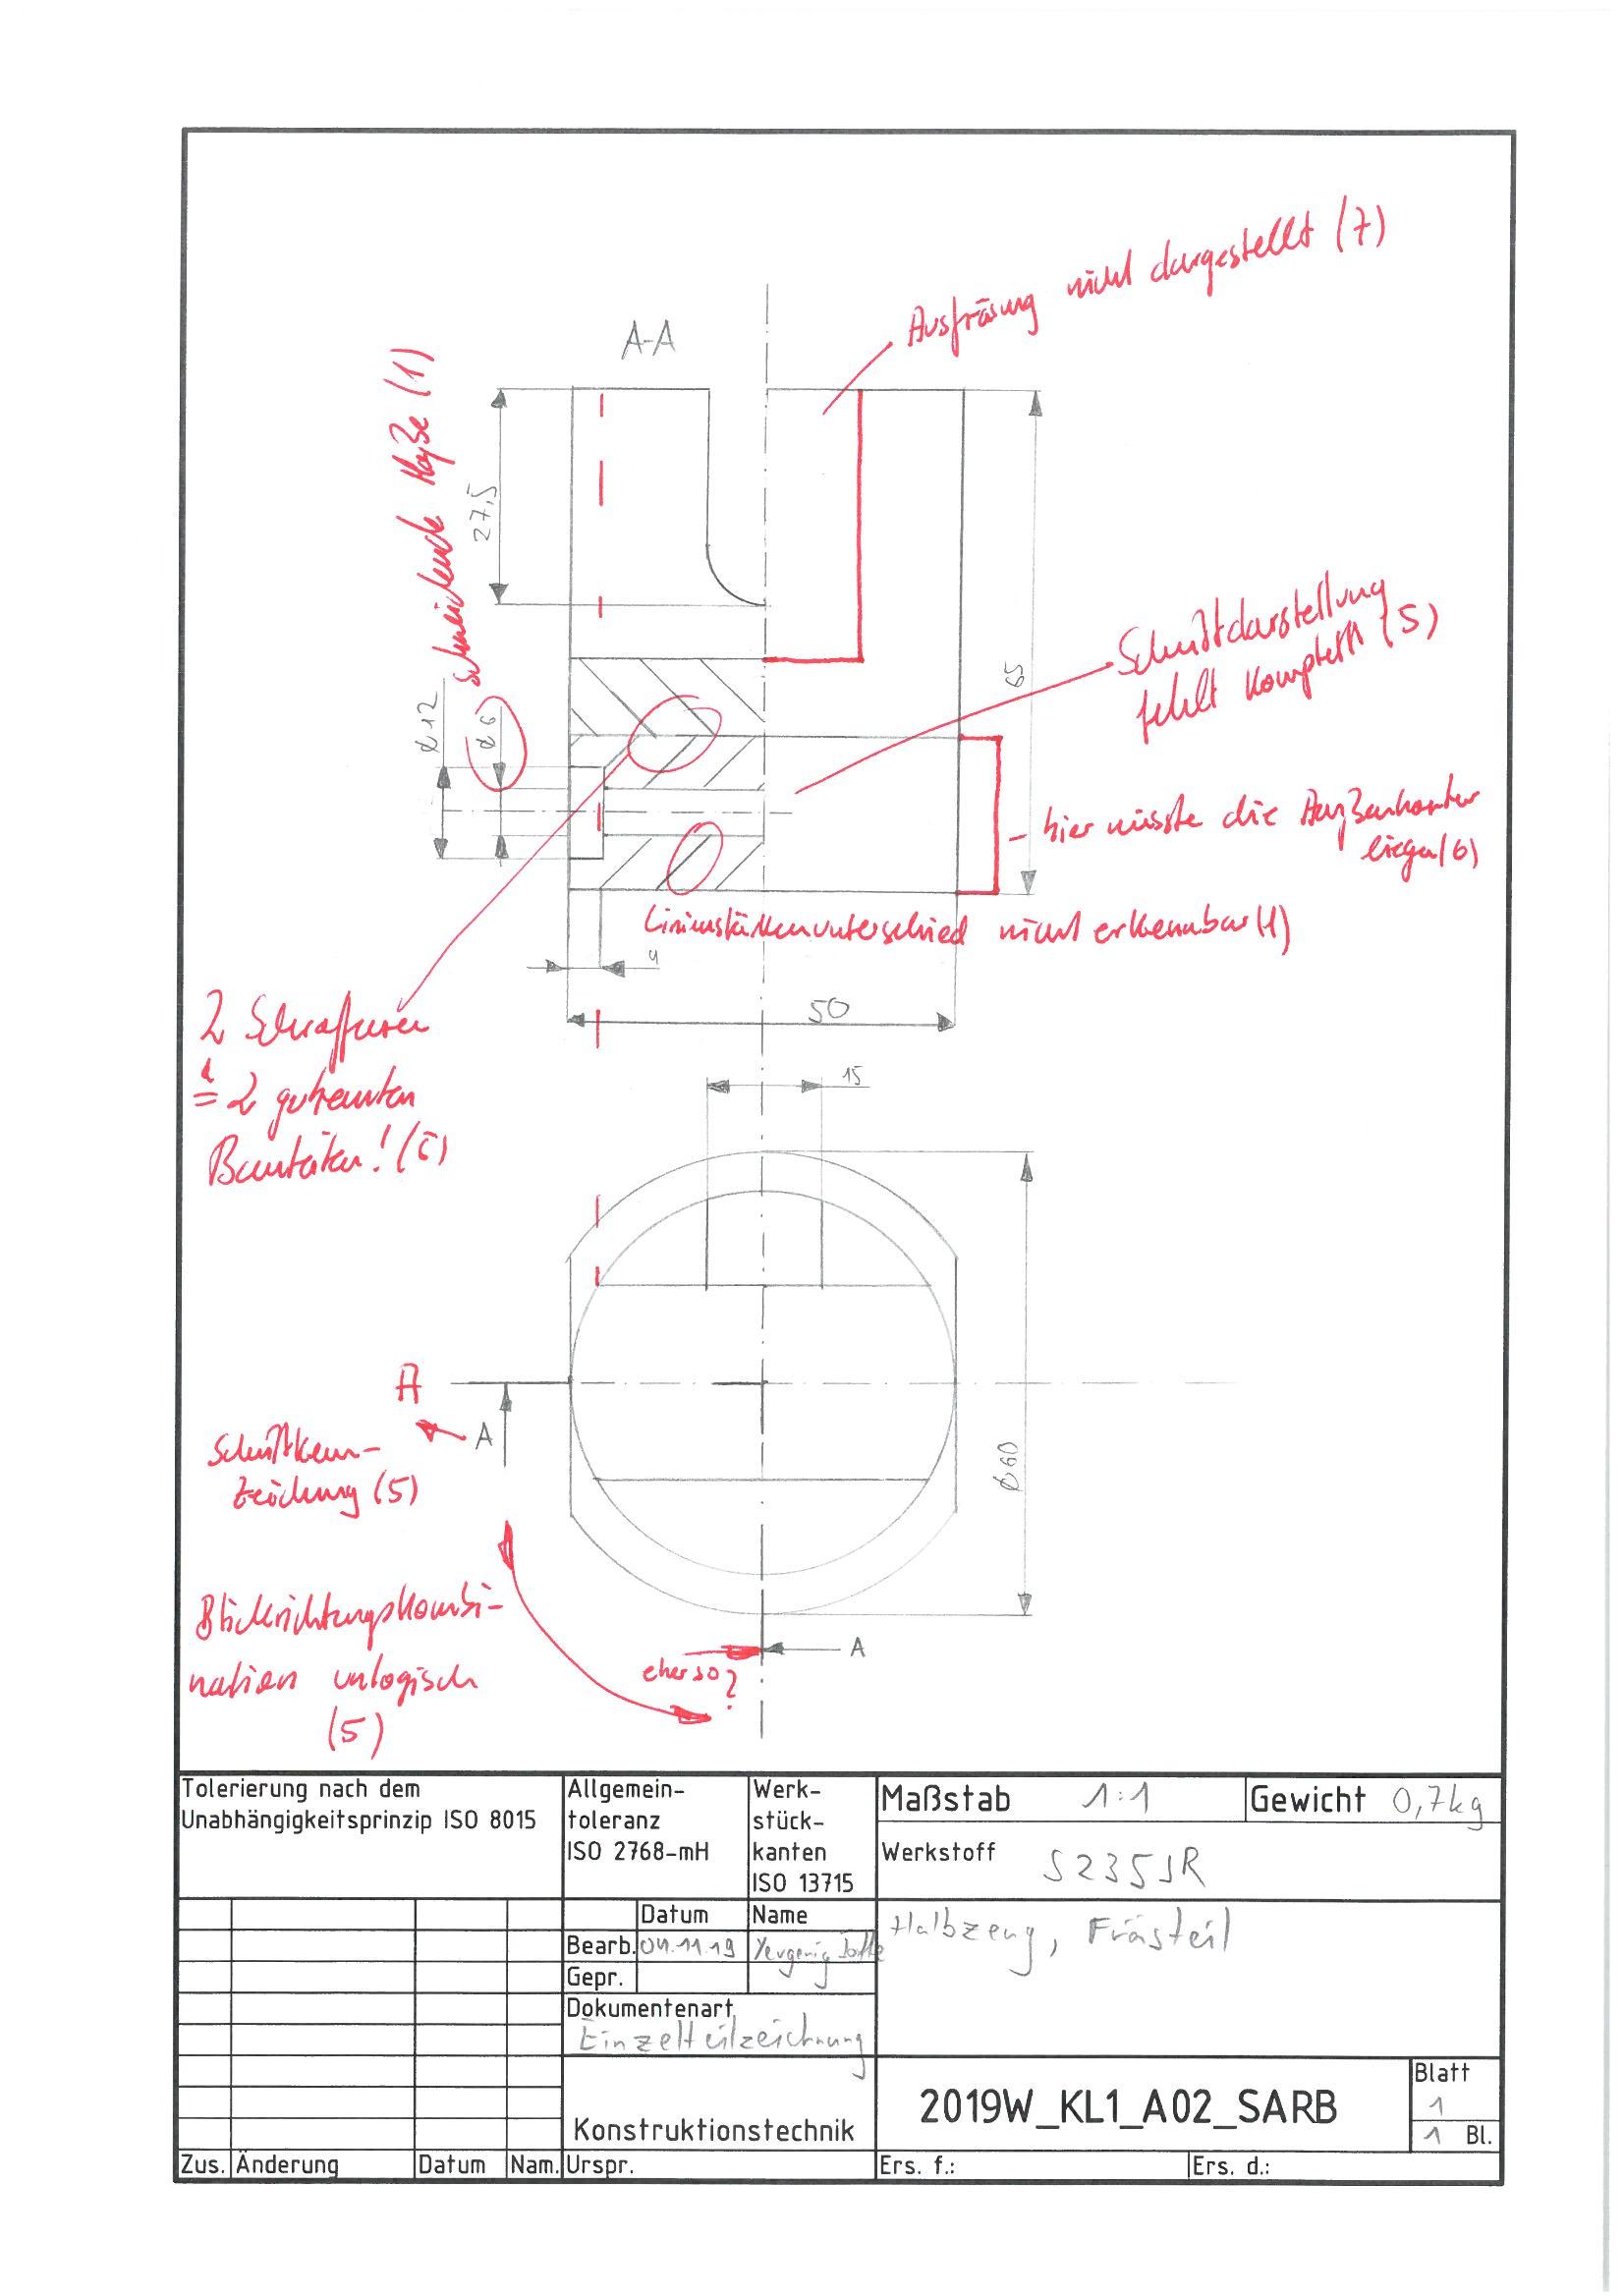 Ausfräsung nicht dargestellt (7)
A-A
Schneidende Maße (1)
27,5
Schnittdarstellung
fehlt komplett (5)
65
⌀12
⌀6
hier müsste die Außenkante
liegen (6)
Linienstärkenunterschied nicht erkennbar (1)
4
2 Schraffuren
≙ 2 getrennten
Bauteilen!
50
15
A
A
Schnittkenn-
zeichnung (5)
⌀60
Blickrichtungskombi-
nation unlogisch
(5)
eher so?
A
Tolerierung nach dem
Unabhängigkeitsprinzip ISO 8015
Allgemein-
toleranz
ISO 2768-mH
Werk-
stück-
kanten
ISO 13715
Maßstab 1:1
Gewicht 0,7kg
Werkstoff S235JR
Datum Name
Bearb. 04.11.19
Gepr.
Halbzeug, Frästeil
Dokumentenart
Einzelteilzeichnung
Konstruktionstechnik
2019W_KL1_A02_SARB
Blatt
1
1 Bl.
Zus. Änderung Datum Nam. Urspr. Ers. f.: Ers. d.: